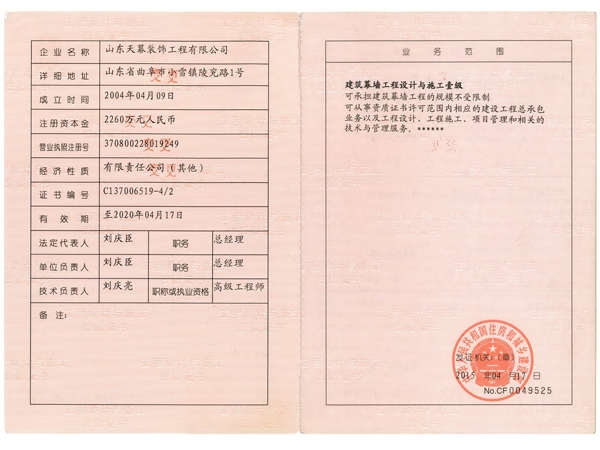 企业名称 山东天幕装饰工程有限公司
详细地址 山东省曲阜市小雪镇陵兖路1号
成立时间 2004年04月09日
注册资本金 2260万元人民币
营业执照注册号 370800228019249
经济性质 有限责任公司(其他)
证书编号 C137006519-4/2
有效期 至2020年04月17日
法定代表人 刘庆臣 职务 总经理
单位负责人 刘庆臣 职务 总经理
技术负责人 刘庆亮 职称或执业资格 高级工程师
备注:
业务范围
建筑幕墙工程设计与施工壹级
可承担建筑幕墙工程的规模不受限制
可从事资质证书许可范围内相应的建设工程总承包
业务以及工程设计、工程施工、项目管理和相关的
技术与管理服务。******
发证机关:(章)
2015 年04 月17 日
No.CF0049525